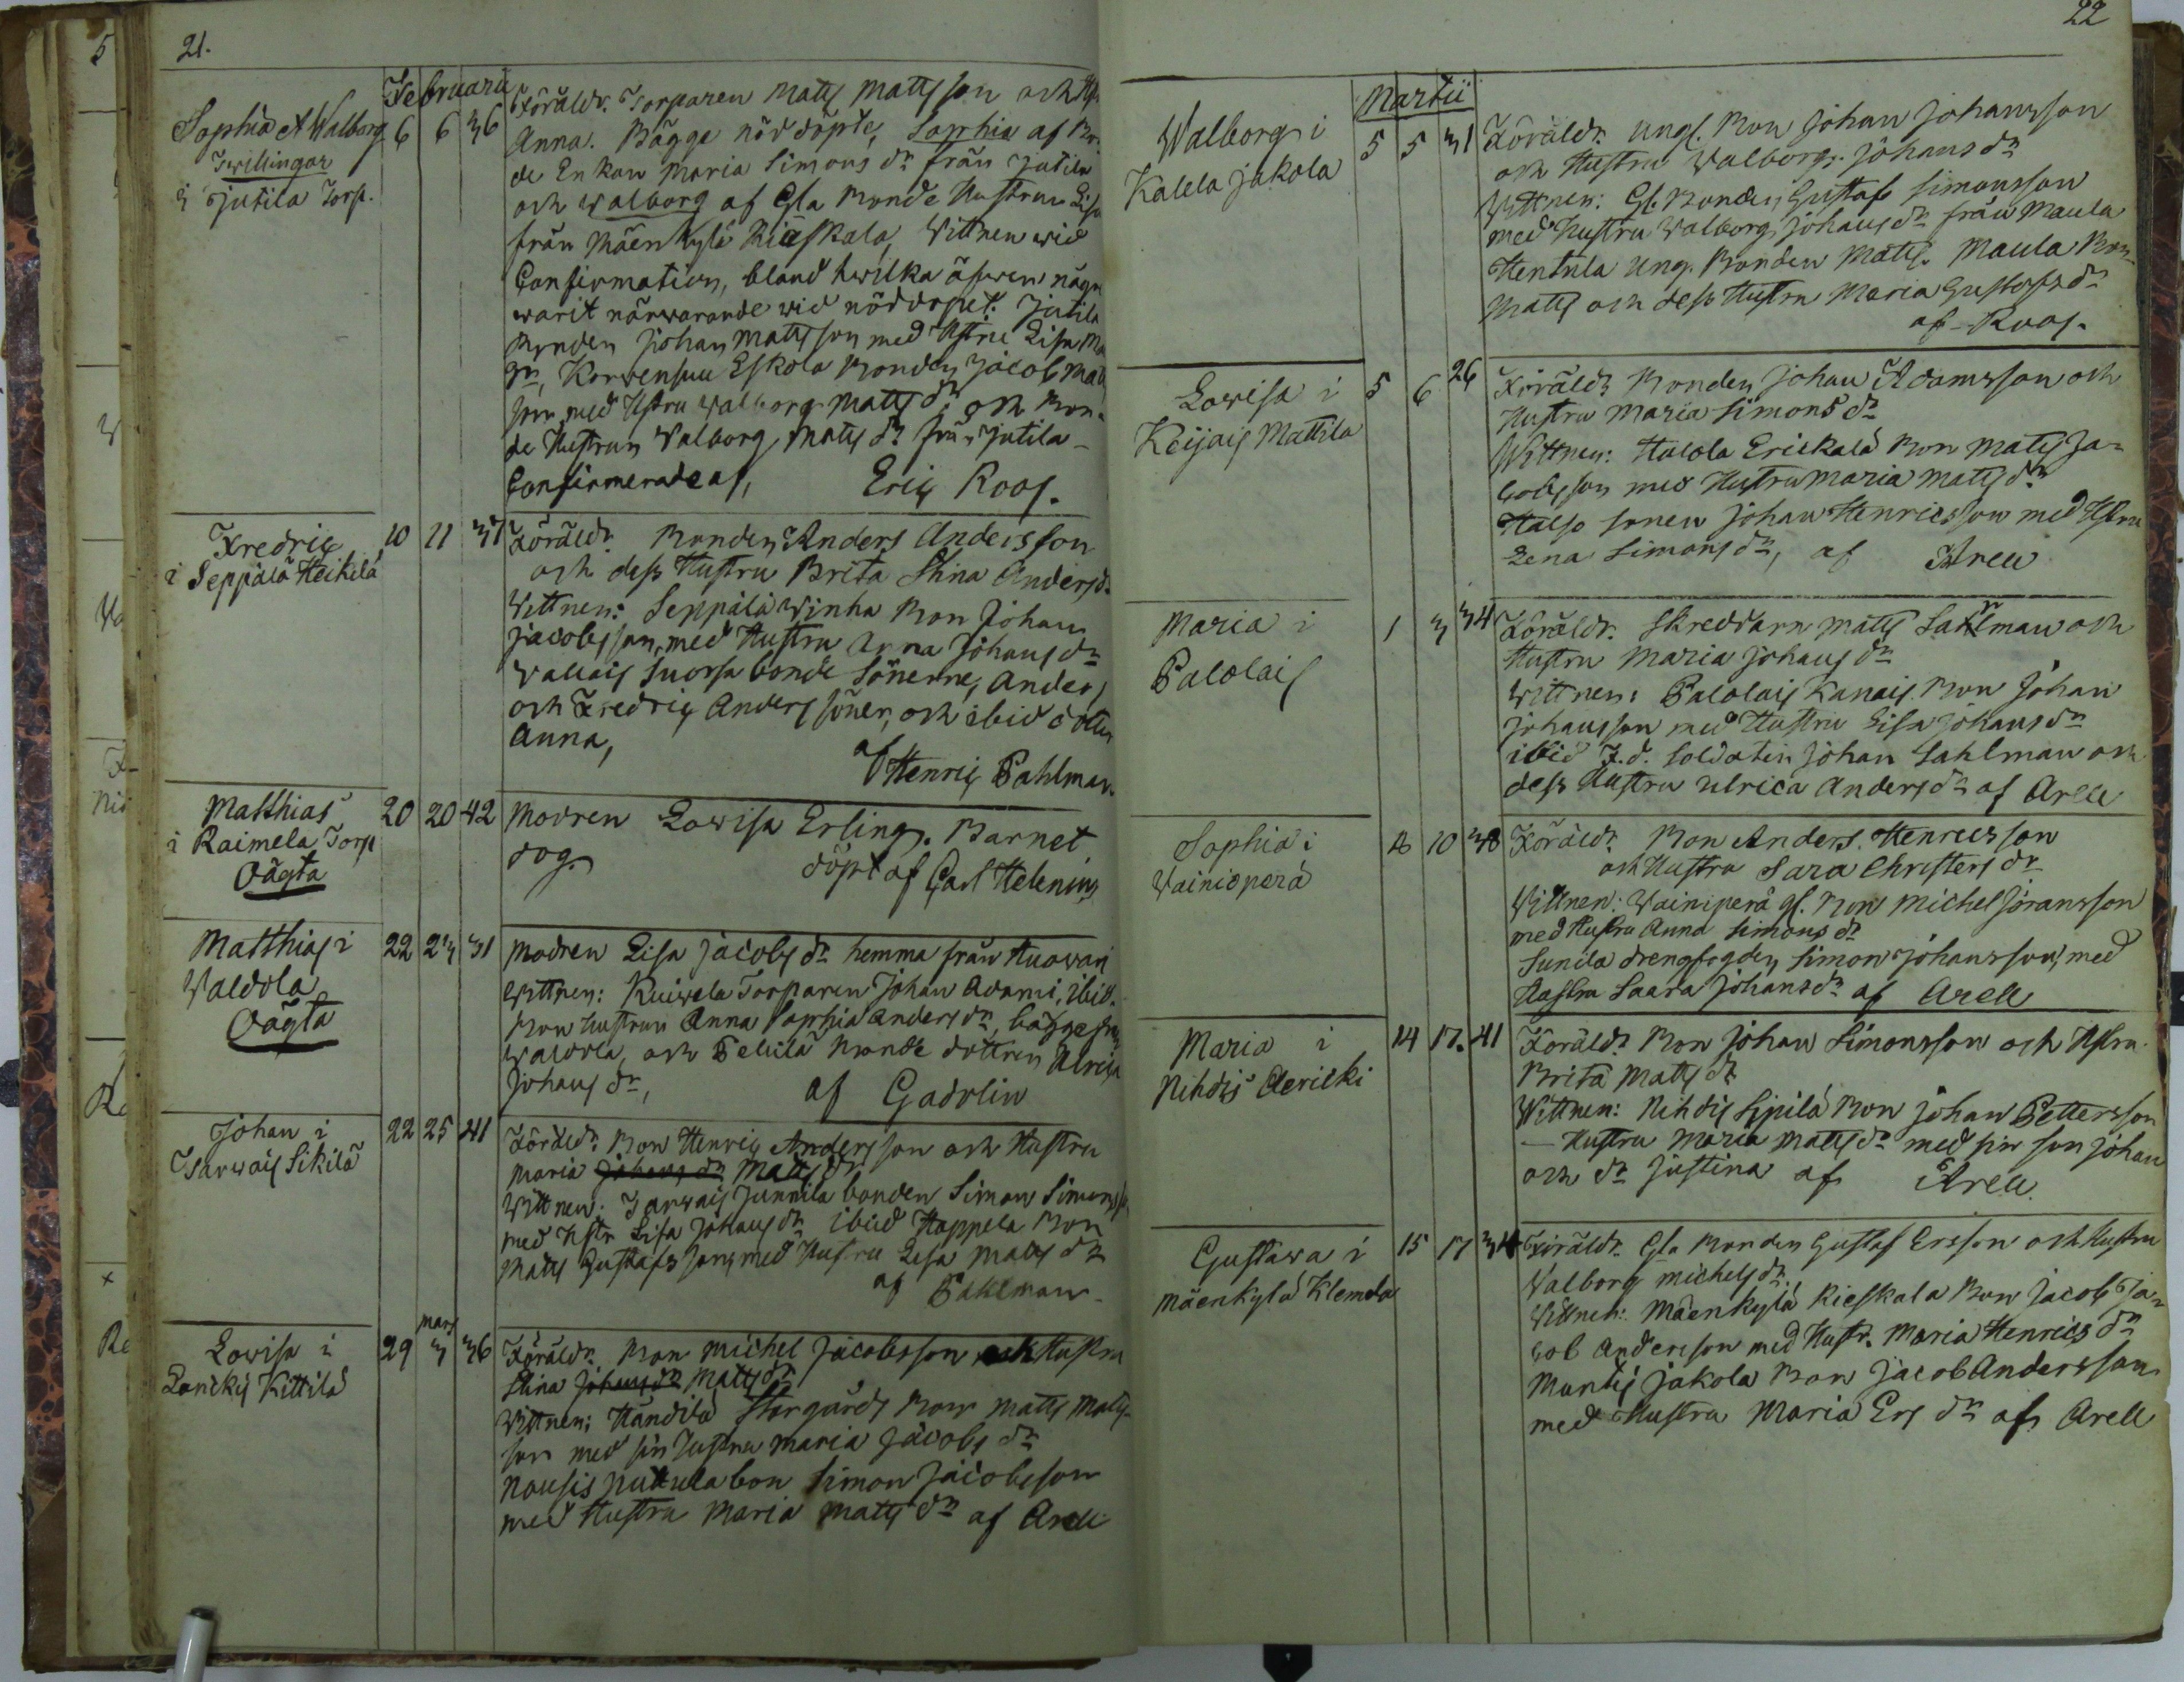 21.
Februarii
Sophia et Walborg
Twillingar
i Jutila Torp.
6 6 36
Föräldr. Torparen Matts Mattsson och Hu
Anna. Bägge nöddöpte, Sophia af Bon
de Enkan Maria Simons dr från Jutila
och Walborg af Gla Bonde Hustrun Lisa
från Mäenkylä Kieskala, Wittnen wid
Confirmation, bland hwilka äfwen någre
warit närwarande wid nöddopet. Jutila
Bonden Johan Mattsson med Hustru Lisa
Korwensuu Eskola Bonden Jacob Matts
son med Hstru Walborg Matts dr och Bon-
de Hustrun Walborg Matts dr från Jutila
Confirmerade af, Eric Roos.
Fredric
i Seppälä Heikilä
10 11 37
Föräldr. Bonden Anders Andersson
och dess Hustru Brita Stina Anders dr
Wittnen: Seppälä Winha Bon Johan
Jacobsson, med Hustru Anna Johans dr
Wallais Suorsa bonde Sönerne, Anders
och Fredric Anders söner, och ibid dotter
Anna,
af Henric Pahlman.
Matthias
i Raimela Torp
Oägta
20 20 42
Modren Lowisa Erling. Barnet
dog. döpt af Carl Helenius
Matthias i
Waldola
Oägta
22 23 31
Modren Lisa Jacobs dr hemma från
Wittnen: Kuiwela Torparen Johan Adami, ibid.
Bon hustrun Anna Sophia Anders dr, bägge från
Waldola, och Pellilä Bonde dottren Ulrica
Johans dr, af Gadolin
Johan i
Tsarwais Sikilä
22 25 41
Föräldr. Bon Henric Andersson och Hustru
Maria Johans dr Matts dr
Wittnen: Tsarwais Junnila bonden Simon Simons
med Hstr Lisa Johans dr ibid Happela Bon
Matts Gustafsson med Hustru Lisa Matts dr
af Pahlman
Lowisa i
Lancky Kittilä
29 mars 3 36
Föräldr. Bon Michel Jacobsson och Hustru
Stina Johans dr Matts dr
Wittnen: Händilä Storgårds Bon Matts Matts-
son med sin Hustru Maria Jacobs dr
Nousis bon Simon Jacobsson
med Hustru Maria Matts dr af Arell
22
Martii
Walborg i
Kalela Jakola
5 5 31
Föräldr. Ungl. Bon Johan Johansson
och Hustru Walborg. Johans dr
Wittnen: Gl. Bonden Gustaf Simonsson
med Hustru Walborg Johans dr från Maula
Hentula Ung. Bonden Matts. Maula Bon
Matts och dess Hustru Maria Gustafs dr
af Roos.
Lowisa i
Keijais Mattila
5 6 26
Föräldr Bonden Johan Adamsson och
Hustru Maria Simons dr
Wittnen: Halola Erickala Bon Matts Ja-
cobsson med Hustru Maria Matts dr
Halso sonen Johan Henricsson med Hstru
Lena Simons dr, af Arell
Maria i
Palolais
1 3 34
Föräldr. Skreddarn Matts Sahlman och
Hustru Maria Johans dr
Wittnen: Palolais Kanais Bon Johan
Johansson med Hustru Lisa Johans dr
ibid F.d. Soldaten Johan Sahlman och
dess Hustru Ulrica Anders dr af Arell
Sophia i
Wainioperä
10 38
Föräldr. Bon Anders Henricsson
och Hustru Sara Christers dr
Wittnen: Wainiperä gl. Bon Michel Jöransson
med Hustru Anna Simons dr
Sunila drengfogden Simon Johansson, med
Hustru Saara Johans dr af Arell
Maria i
Nihdis Aericki
14 17. 41
Föräldr. Bon Johan Simonsson och Hstru
Brita Matts dr
Wittnen: Nihdis Sipilä Bon Johan Pettersson
— Hustru Maria Matts dr med sin son Johan
och dr Justina af Arell
Gustawa i
Mäenkylä Klemola
15 17 34
Föräldr. Gla Bonden Gustaf Ersson och Hustru
Walborg Michels dr.
Wittnen: Mäenkylä Kieskala Bon Jacob Ja-
cob Andersson med Hustr. Maria Henrics dr
Muntis Jakola Bon Jacob Andersson
med Hustru Maria Ers dr af Arell